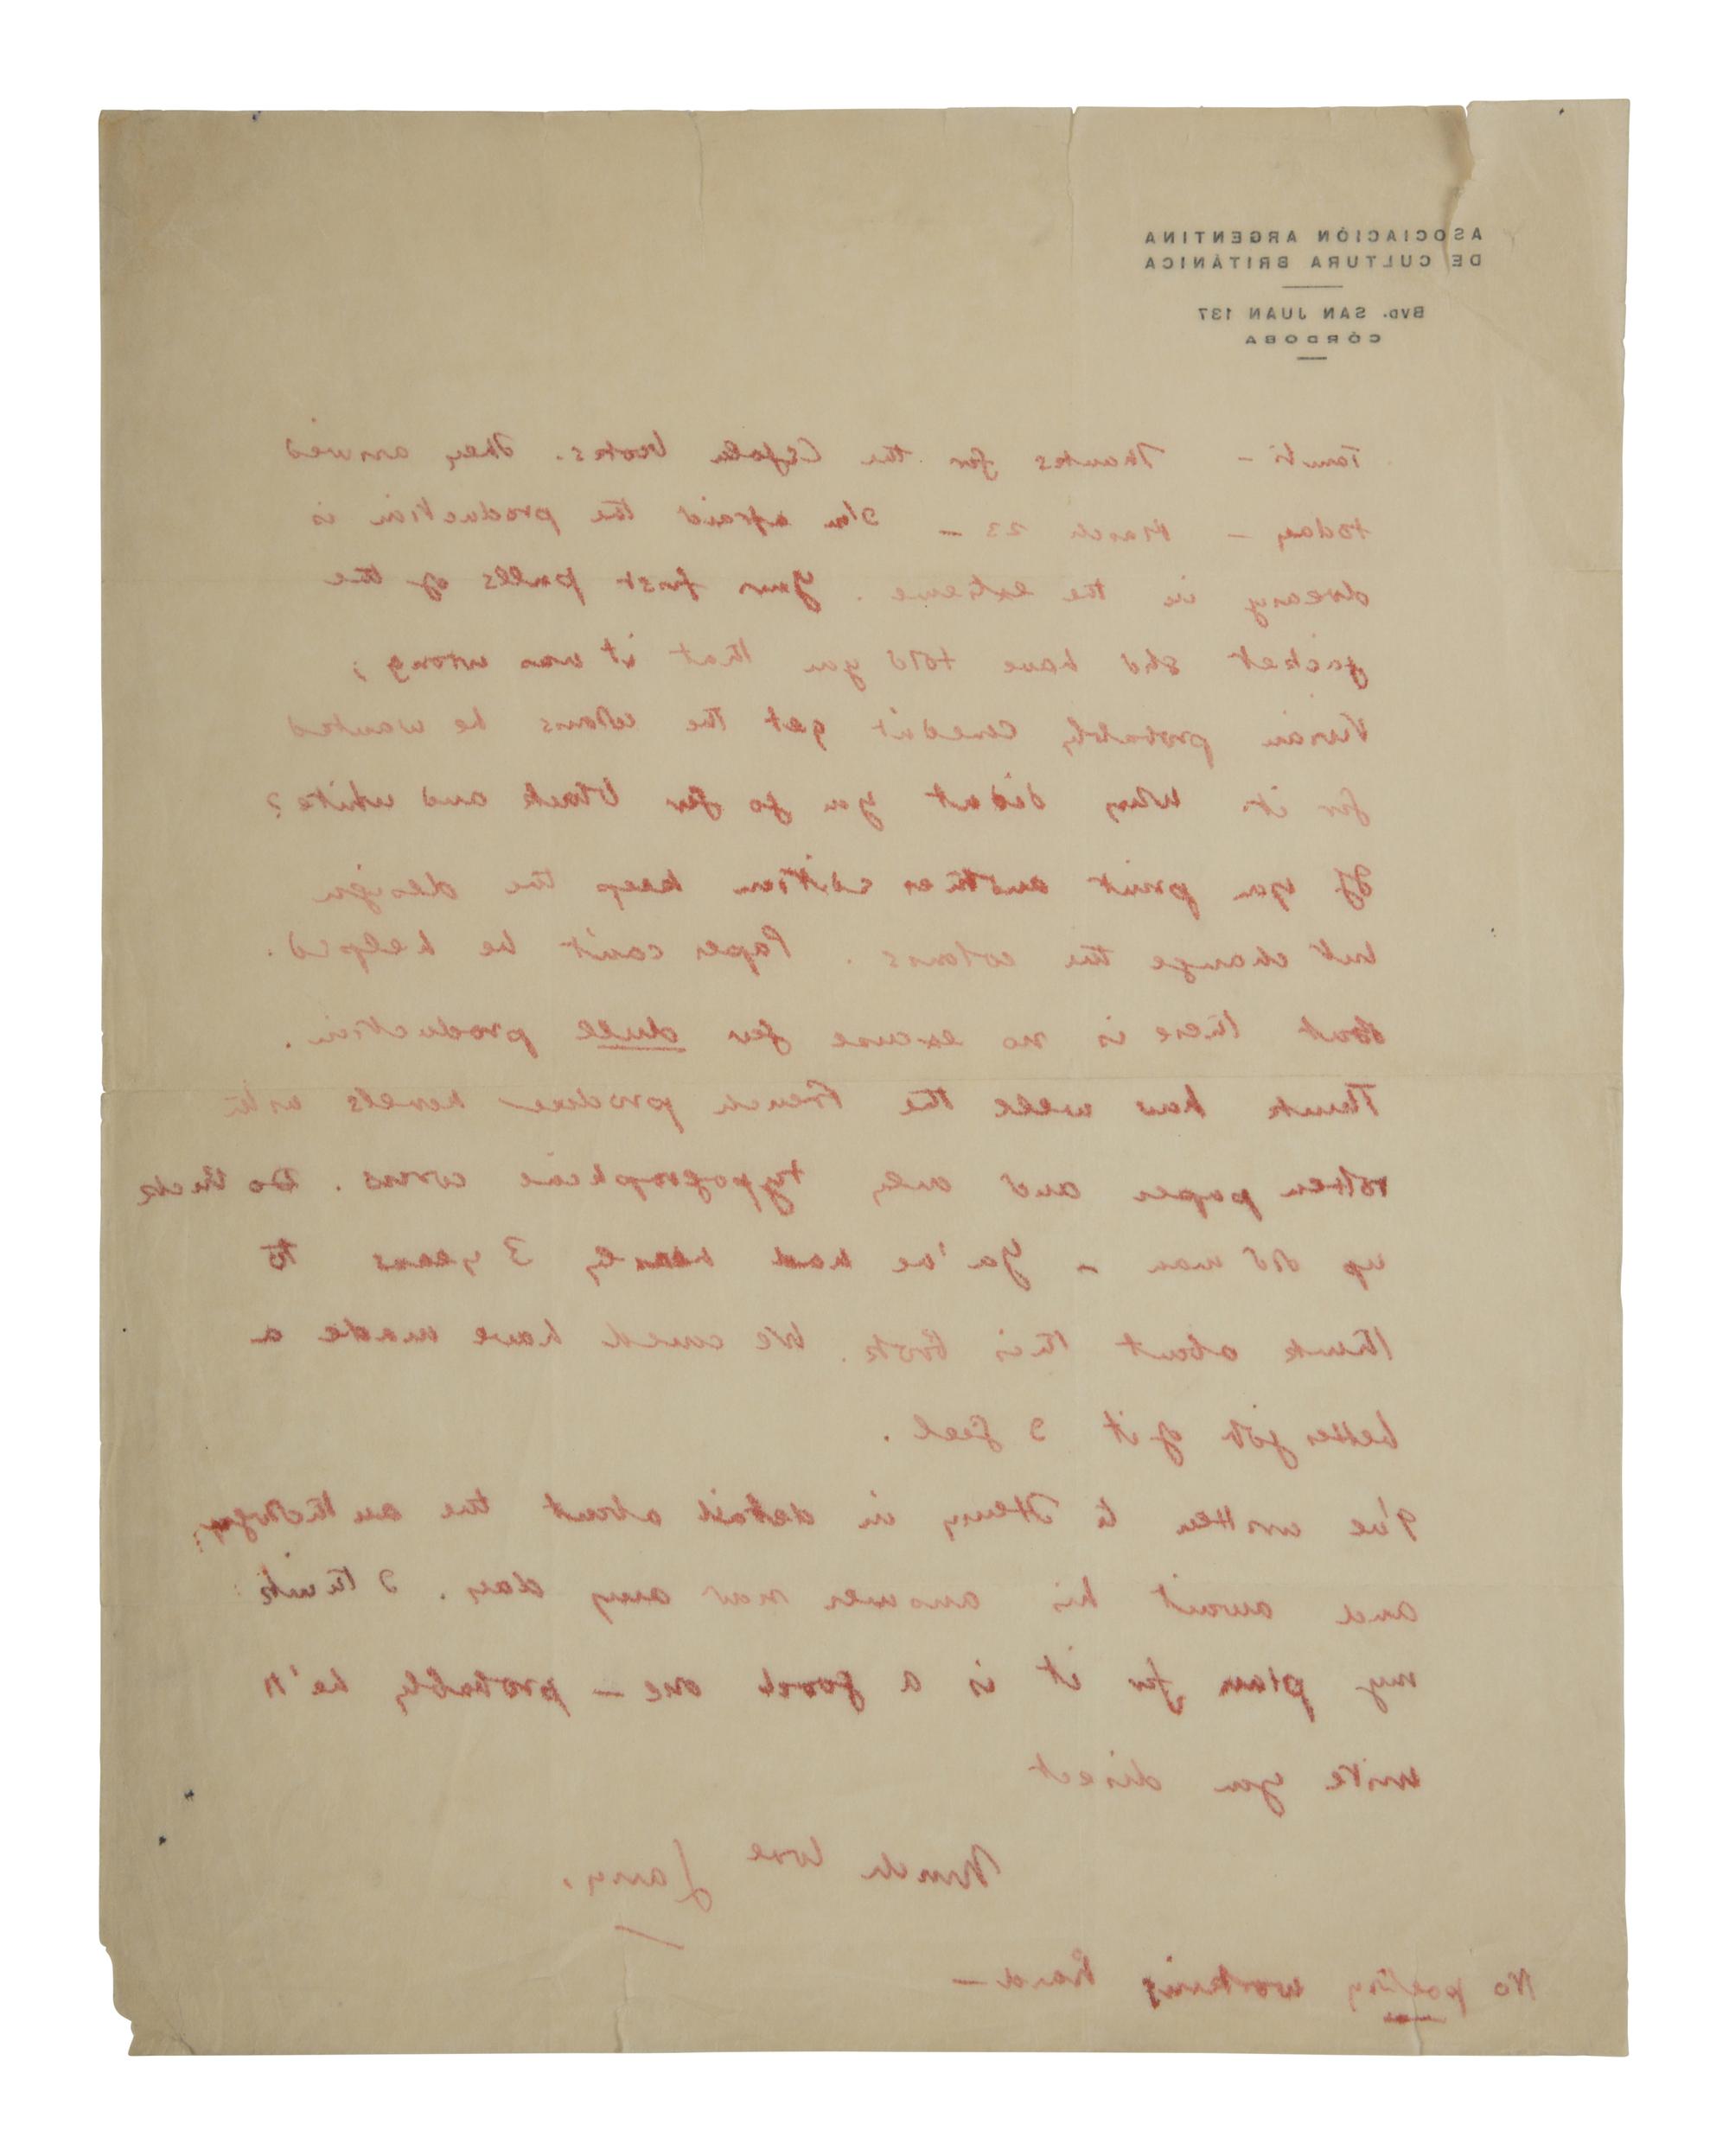 ASOCIACIÓN ARGENTINA
DE CULTURA BRITÁNICA
BVD. SAN JUAN 137
CÓRDOBA
Tambi – Thanks for the Cefalu books. They arrived
today – March 23 – I'm afraid the production is
dreary in the extreme. Your first pulls of the
jacket shd have told you that it was wrong;
probably couldn't get the colours he wanted
for it. Why didnt you go for black and white?
If you print another edition keep the design
but change the colours. Paper can't be helped.
But there is no excuse for dull production.
Think how well the French produce novels with
rotten paper and only typographical covers. Do buck
up old man – You've had nearly 3 years to
think about this book. We could have made a
better job of it I feel.
I've written to Henry in detail about the anthology,
and await his answer now any day. I think
my plan for it is a good one – probably he'll
write you direct
Much love Larry.
No poetry working hard –